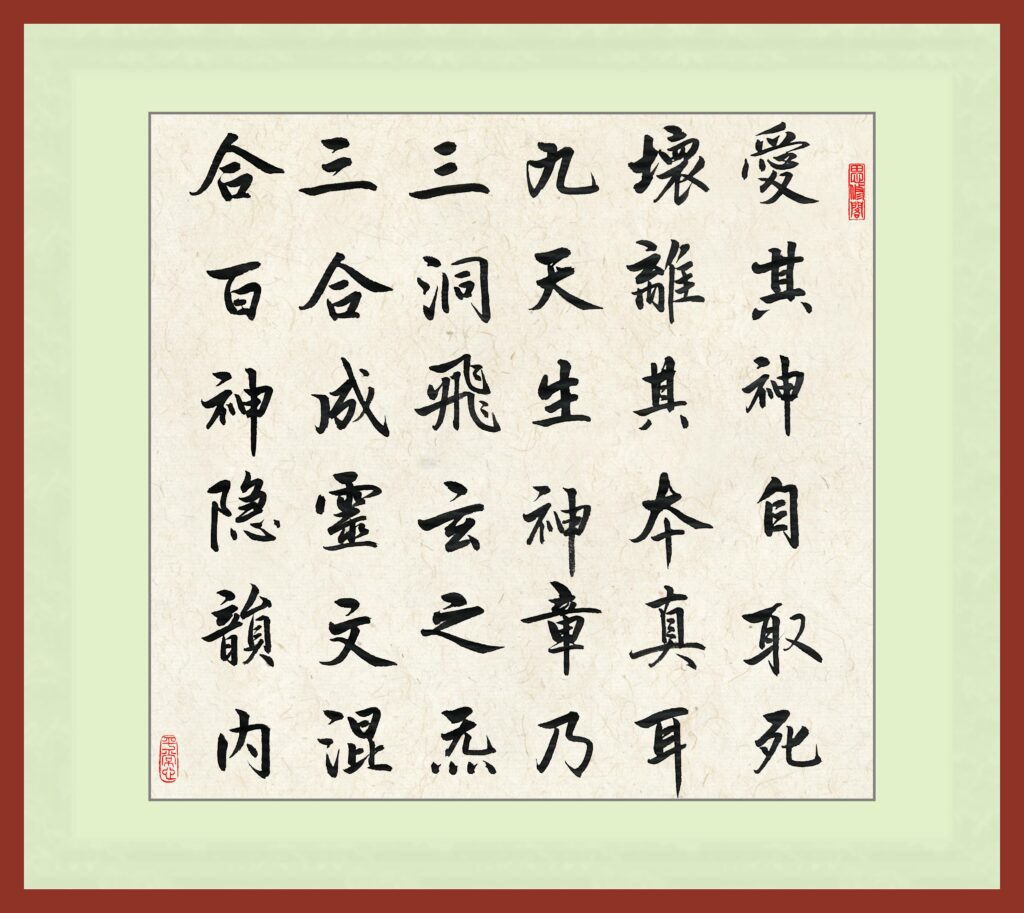 愛其神自取死
壞離其本真耳
九天生神章乃
三洞飛玄之炁
三合成靈文混
合百神隐韻内